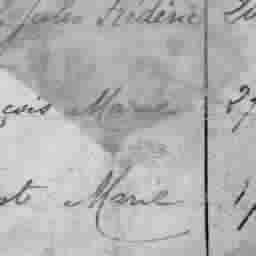 Jules Frédéric 20
çois Marie 27
ste Marie 1